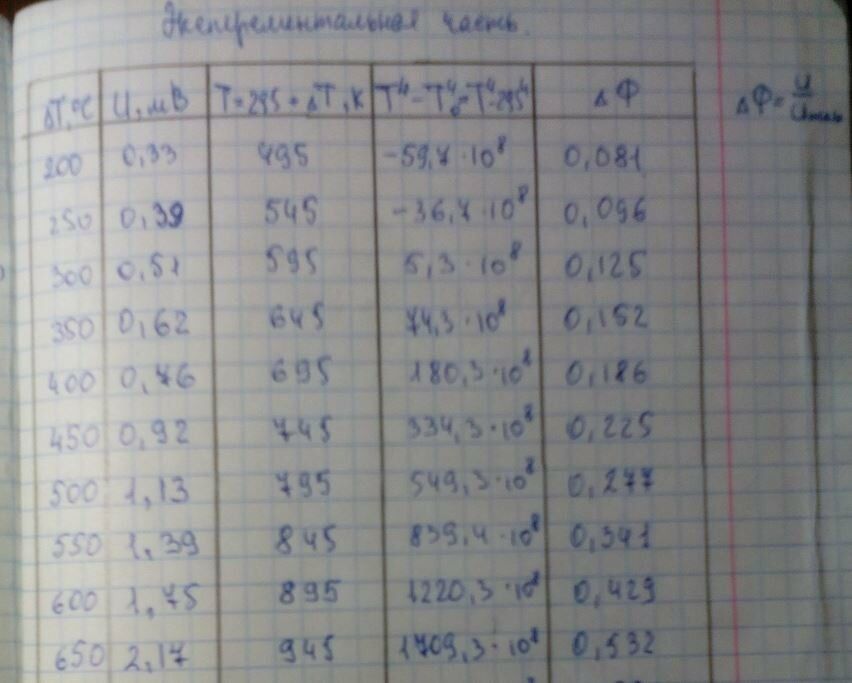 Эксперементальная часть.
ΔT,°C U, мВ T = 295 + ΔT, К T⁴ - T₀⁴ = T⁴ - 295⁴ ΔФ
ΔФ = U/Uмах
200 0,33 495 -59,7·10⁸ 0,081
250 0,39 545 -36,7·10⁸ 0,096
300 0,51 595 5,3·10⁸ 0,125
350 0,62 645 74,3·10⁸ 0,152
400 0,76 695 180,3·10⁸ 0,186
450 0,92 745 334,3·10⁸ 0,225
500 1,13 795 549,3·10⁸ 0,277
550 1,39 845 839,4·10⁸ 0,341
600 1,75 895 1220,3·10⁸ 0,429
650 2,17 945 1709,3·10⁸ 0,532